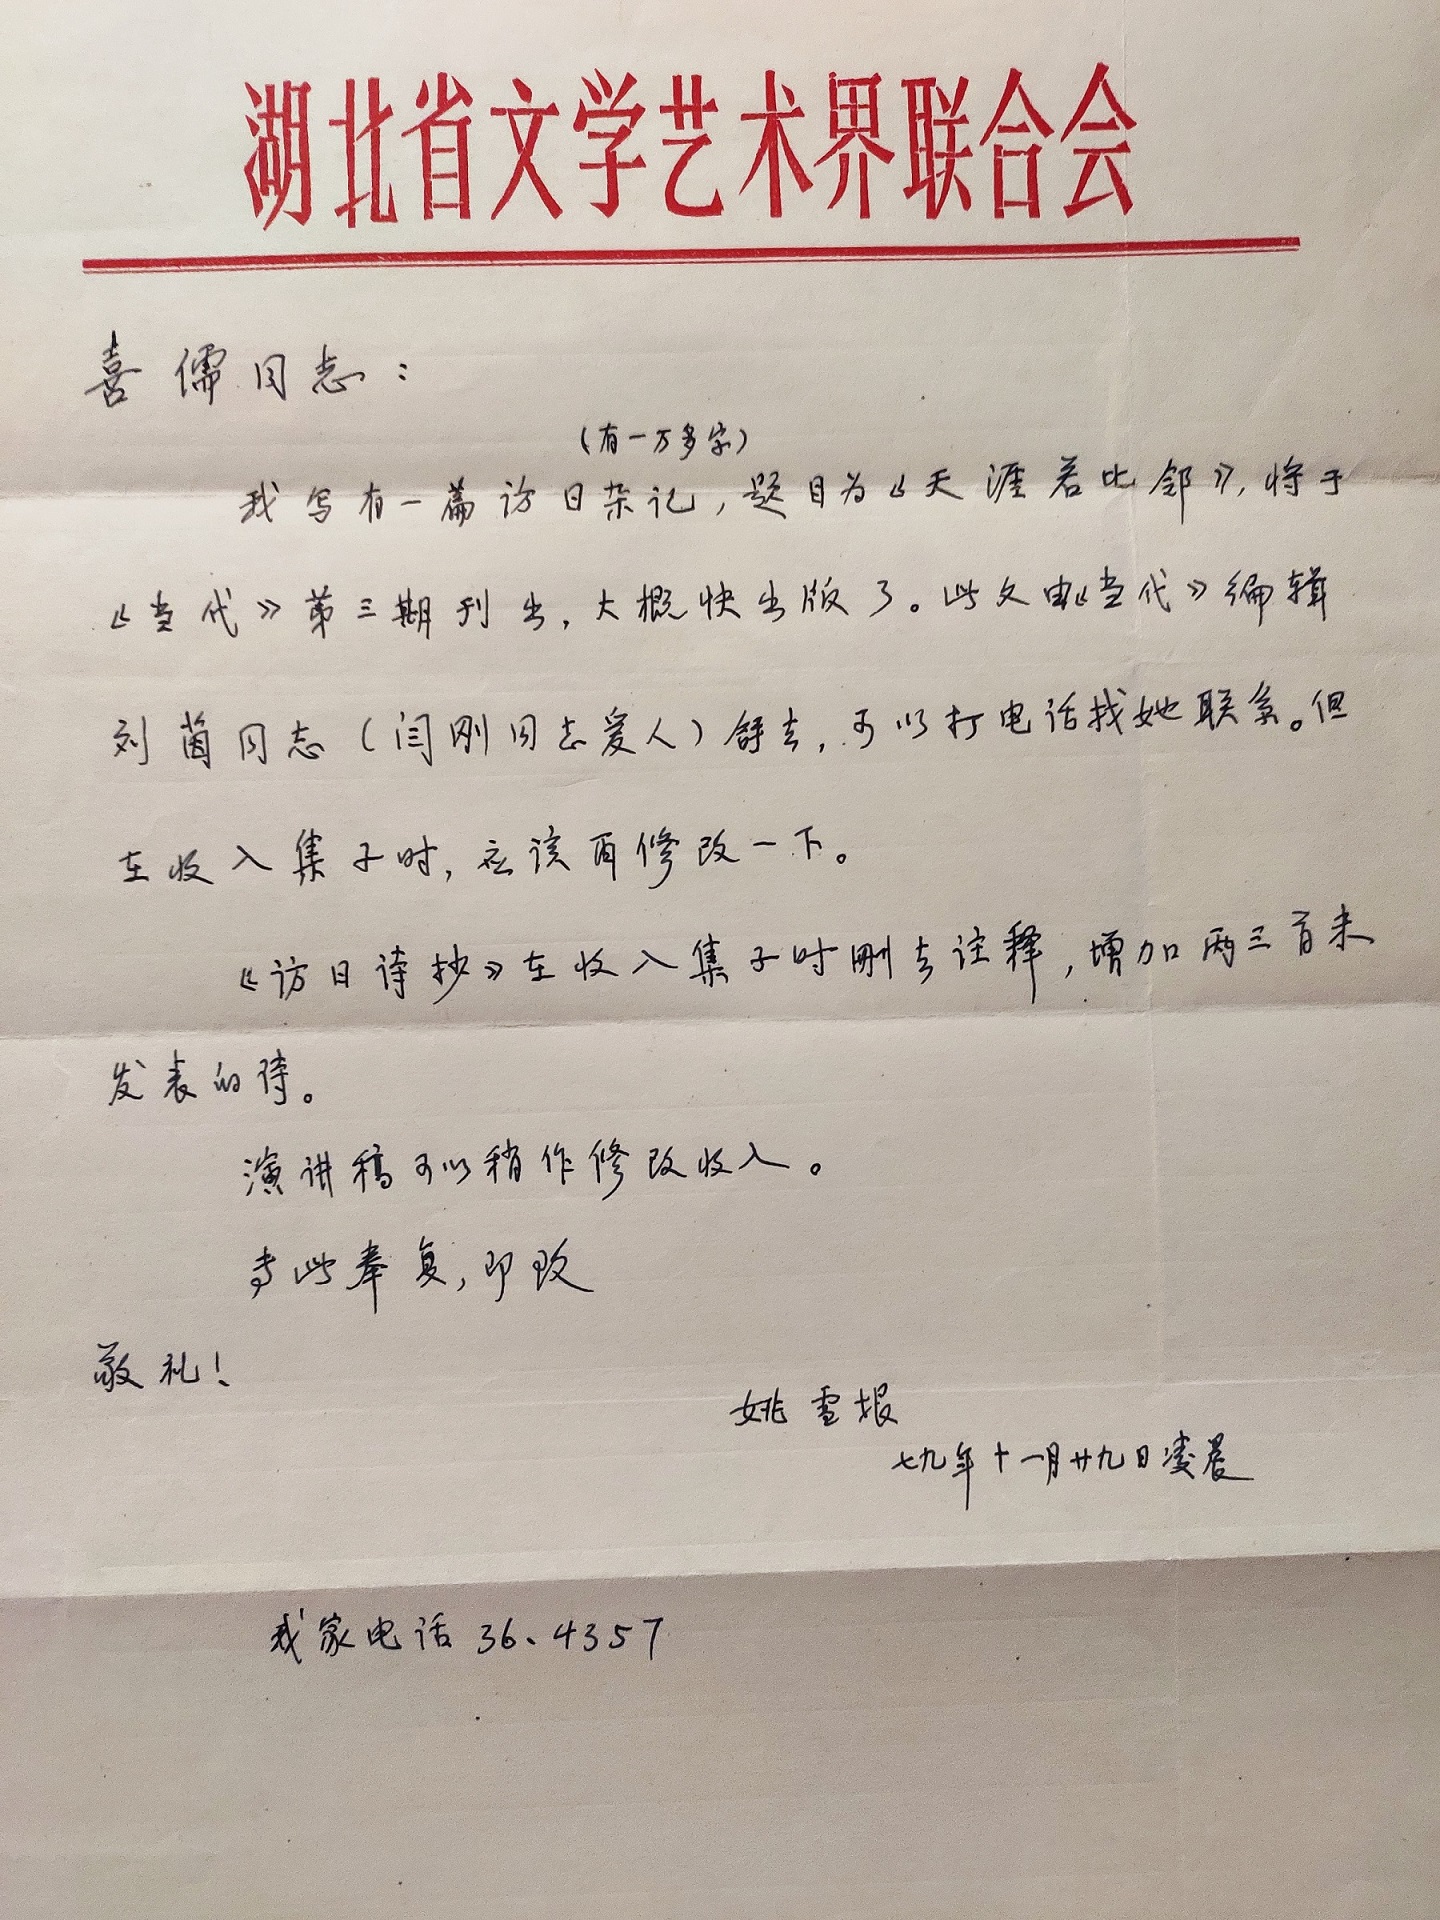 湖北省文学艺术界联合会
喜儒同志：
（有一万多字）
我写有一篇访日杂记，题目为《天涯若比邻》，将于
《当代》第三期刊出，大概快出版了。此文由《当代》编辑
刘茵同志（闫刚同志爱人）拿去，可以打电话找她联系。但
在收入集子时，应该再修改一下。
《访日诗抄》在收入集子时删去注释，增加两三首未
发表的诗。
演讲稿可以稍作修改收入。
专此奉复，即致
敬礼！
姚雪垠
七九年十一月廿九日凌晨
我家电话 36、4357